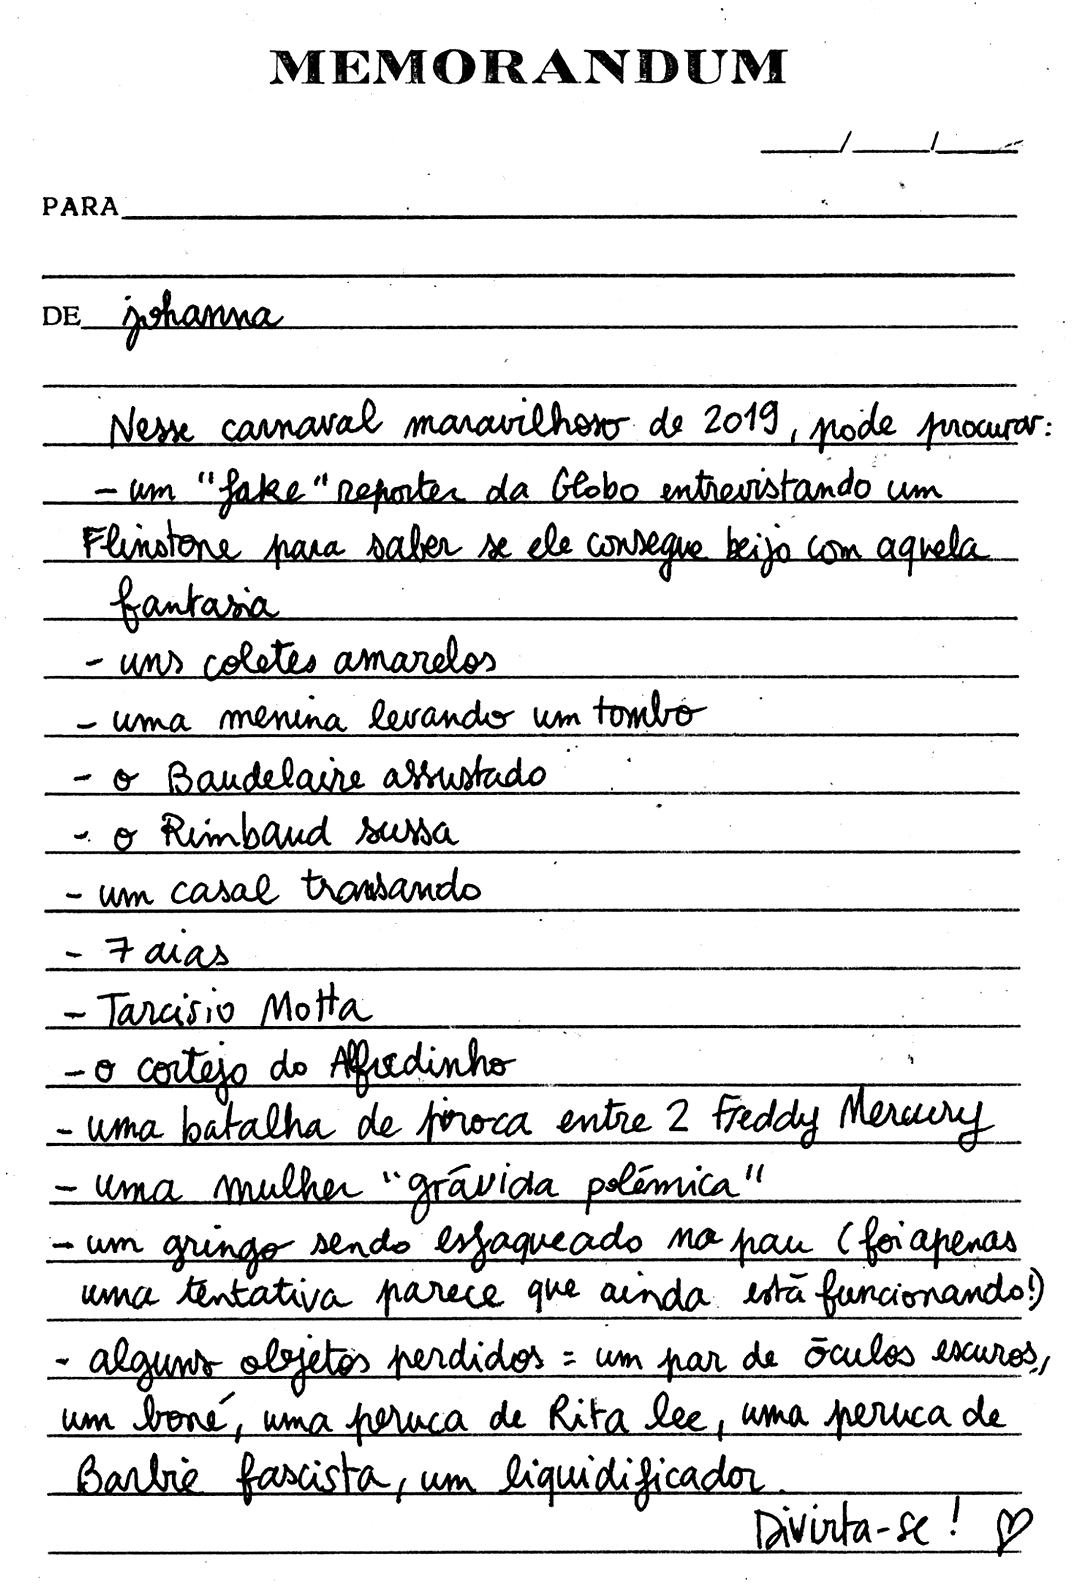 MEMORANDUM
___/___/___
PARA
DE johanna
Nesse carnaval maravilhoso de 2019, pode procurar:
- um "fake" reporter da Globo entrevistando um
Flinstone para saber se ele consegue beijo com aquela
fantasia
- uns coletes amarelos
- uma menina levando um tombo
- o Baudelaire assustado
- o Rimbaud sussa
- um casal transando
- 7 aias
- Tarcisio Motta
- o cortejo do Alfredinho
- uma batalha de piroca entre 2 Freddy Mercury
- uma mulher "grávida polêmica"
- um gringo sendo esfaqueado no pau (foi apenas
uma tentativa parece que ainda está funcionando!)
- alguns objetos perdidos = um par de óculos escuros,
um boné, uma peruca de Rita lee, uma peruca de
Barbie fascista, um liquidificador.
Divirta-se ! ♡